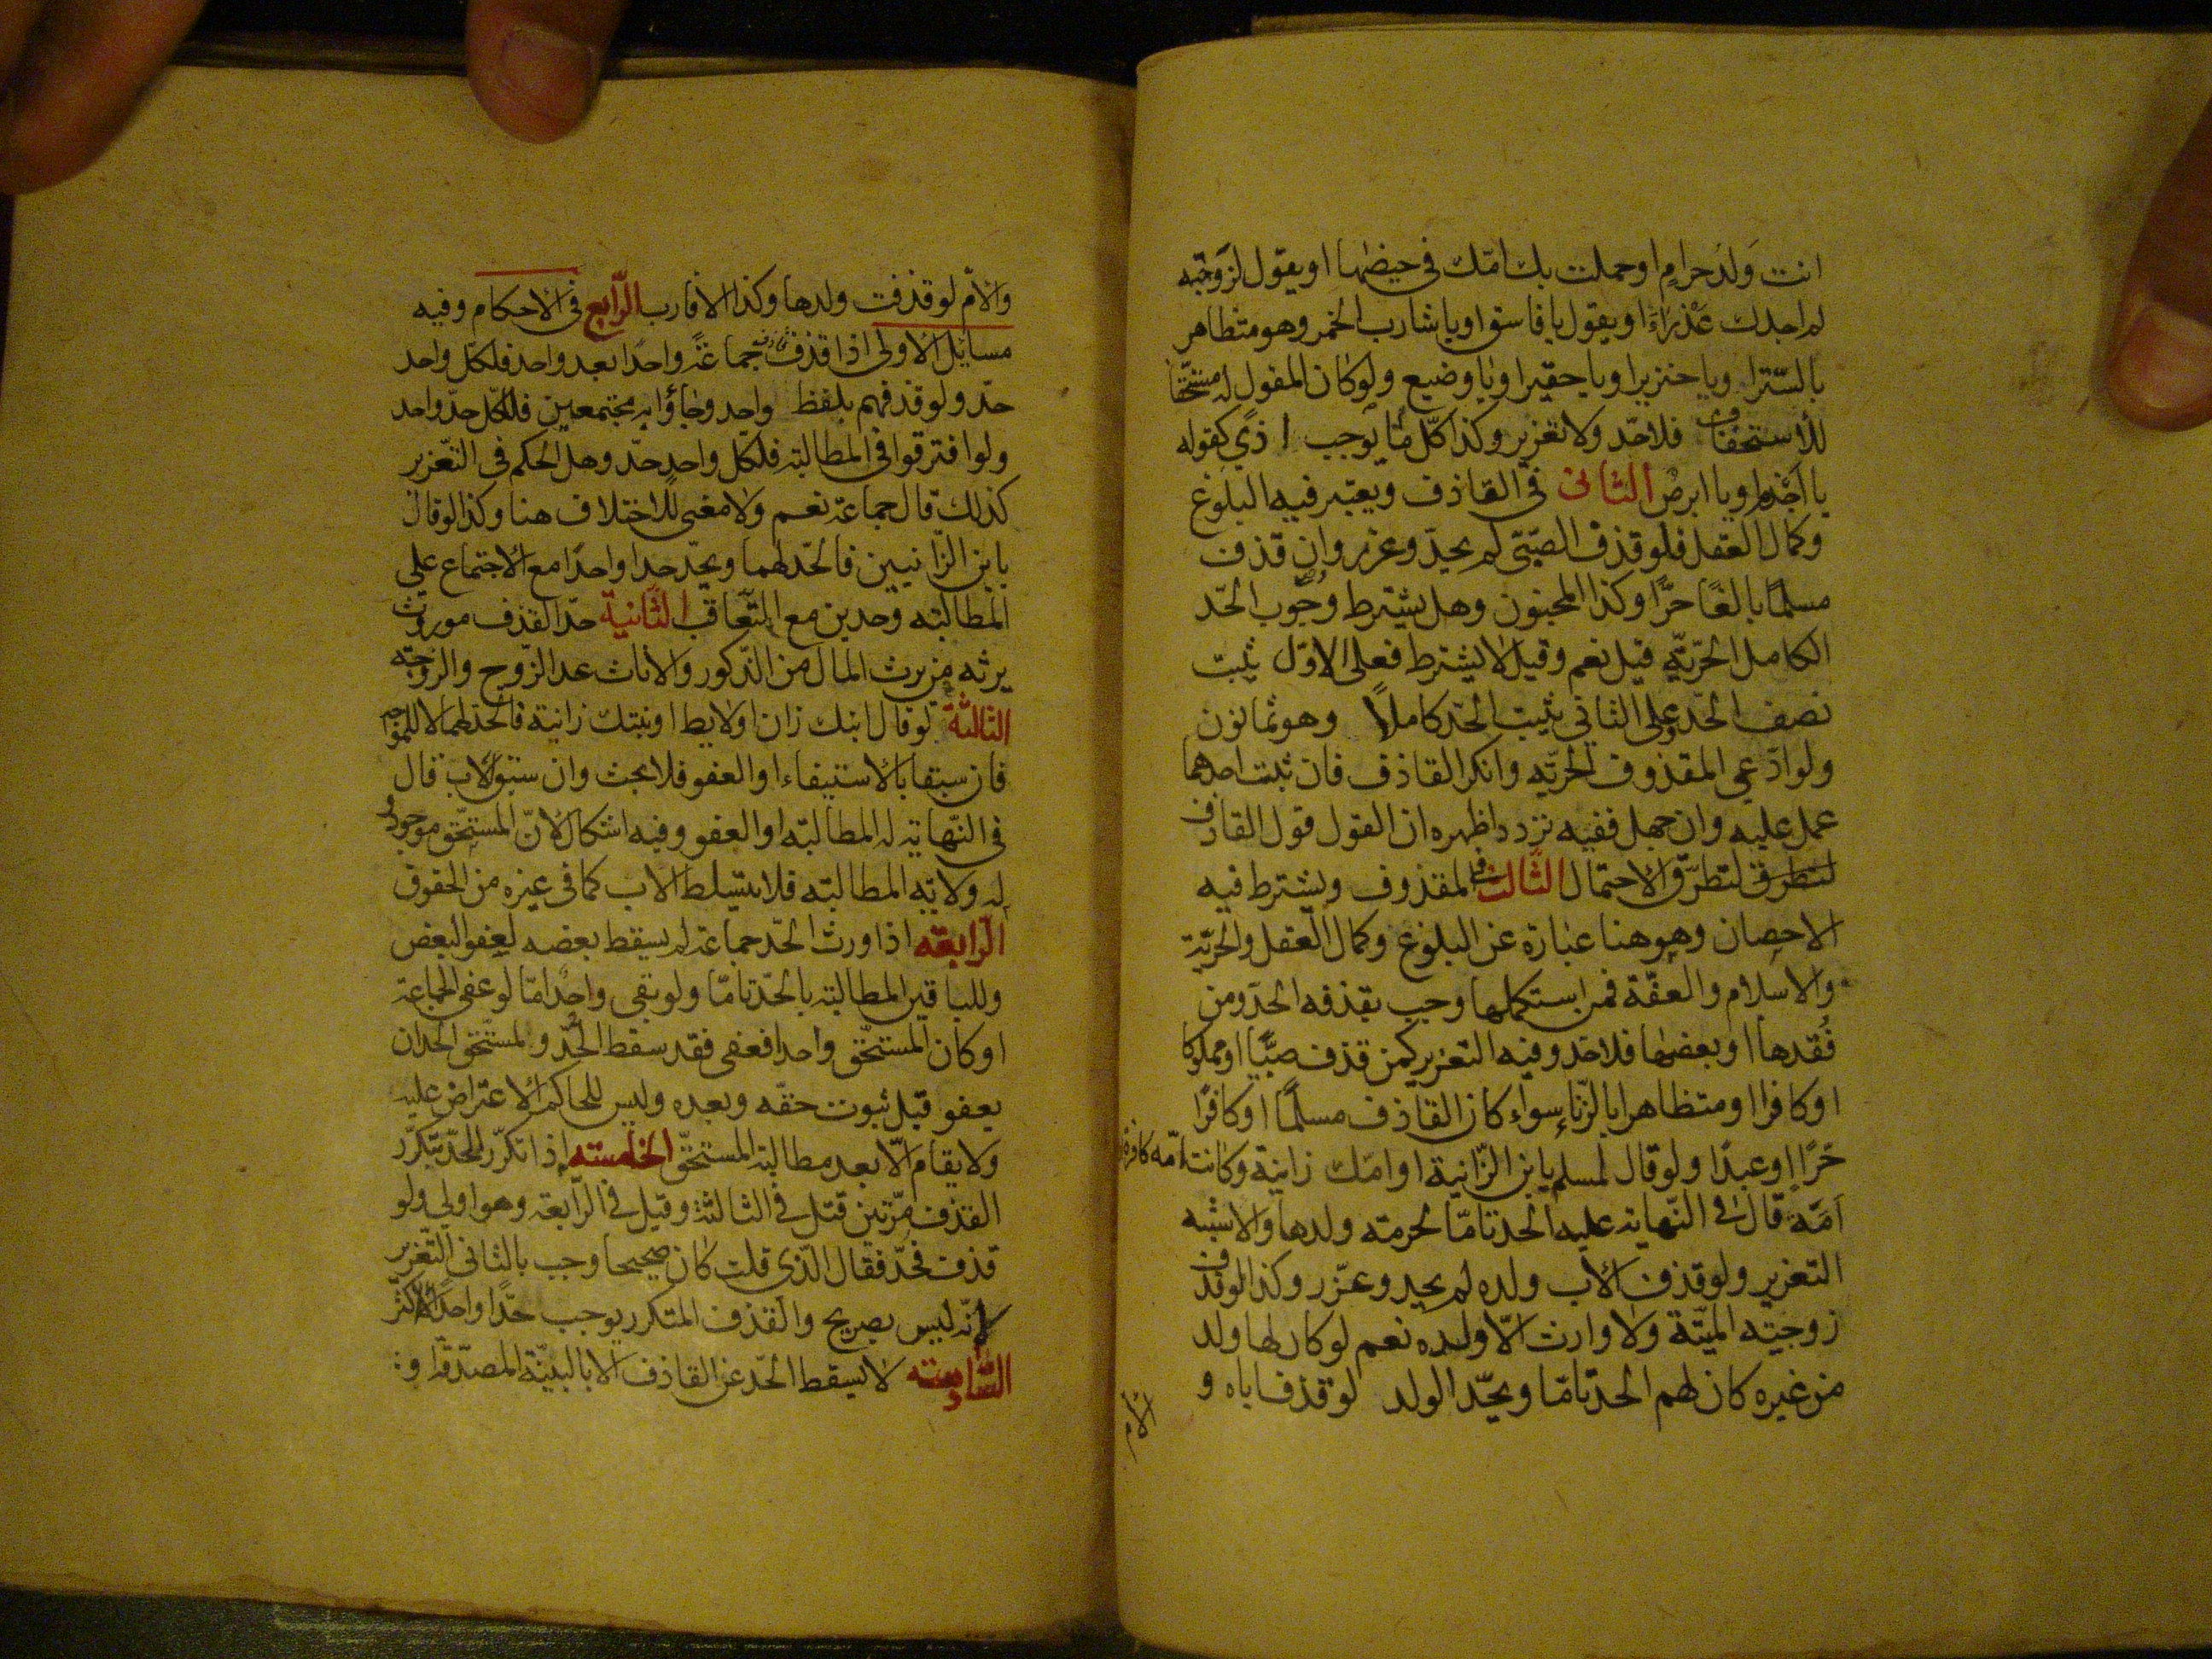 انت وَلَدُ حرامٍ او حملت بك امّك فى حيضها او يقول لزوجته
لم اجدك عَذرَاءَ او يقول يا فاسق او يا شارب الخمر وهو متظاهر
بالسّترا ويا خنزيرا ويا حقيرا ويا وضيع ولو كان المقول له مستحقا
للاستحقاق فلا حدّ ولا تعزير وكذا كلّ ما يوجب اذي كقوله
يا اجذم او يا ابرص الثانى فى القاذف ويعتبر فيه البلوغ
وكمال العقل فلو قذف الصّبىّ لم يحدّ وعزر وان قذف
مسلمًا بالغًا حرًّا وكذا المجنون وهل يشترط وجوب الحّد
الكامل الحريّه قيل نعم وقيل لا يشترط فعلى الاوّل يثبت
نصف الحدّ وعلى الثانى يثبت الحّد كاملاً وهو ثمانون
ولو ادّعى المقذوف الحريّه وانكر القاذف فان ثبت احدهما
عمل عليه وان جهل ففيه تردد اظهره ان القول قول القاذف
لتطرق لتطرّق الاحتمال الثالث فى المقذوف ويشترط فيه
الاحصان وهو هنا عبارة عن البلوغ وكمال العقل والحريّة
والاسلام والعفّة فمن استكملها وجب بقذفه الحدّ ومن
فقدها او بعضها فلا حد وفيه التعزير كمن قذف صبيًّا او مملوكا
او كافرا او متظاهرا بالزّناء سواء كان القاذف مسلمًا او كافرًا
حُرًّا او عبدًا ولو قال لمسلم يا بن الزّانية او امّك زانية وكانت امّه كافرة او
اَمَةً قال فى النّهاية عليه الحدّ تامّا لحرمة ولدها والاشبه
التعزير ولو قذف الاب ولده لم يحد وعزّر وكذا لو قذف
زوجته الميّتة ولا وارث الاّ ولده نعم لو كان لها ولد
من غيره كان لهم الحدّ تامّا ويحّد الولد لو قذف اباه و
الام
والامّ لو قذفت ولدها وكذا الاقارب الرّابع فى الاحكام وفيه
مسايل الاولى اذا قذف جماعةً واحدًا بعد واحد فلكلّ واحد
حدّ ولو قذفهم بلفظ واحد وجاؤا به مجتمعين فللكلّ حدّ واحد
ولو افترقوا فى المطالبة فلكلّ واحدٍ حدّ وهل الحكم فى التّعزير
كذلك قال جماعة نعم ولا معنى للاختلاف هنا وكذا لو قال
يا بن الزّانيين فالحّد لهما ويحّد حدا واحدًا مع الاجتماع على
المطالبته وحدين مع التّعاقب الثّانية حدّ القذف موروث
يرثه من يرث المال من الذّكور والاناث عدا الزّوج والزّوجة
الثالثة لو قال ابنك زان او لايط او بنتك زانية فالحدّ لهما لا للمواجه
فان سبقا بالاستيفاء او العفو فلا بحث وان سبق الاب قال
فى النّهاية له المطالبة او العفو وفيه اشكال لانّ المستحّق موجود و
له ولاية المطالبته فلا يتسلط الاب كما فى غيره من الحقوق
الرّابعة اذا ورث الحّد جماعة لم يسقط بعضه بعفو البعض
وللباقين المطالبة بالحّد تامّا ولو بقى واحد امّا لو عفى الجماعة
او كان المستحّق واحدا فعفى فقد سقط الحدّ ولمستحّق الحدّ ان
يعفو قبل ثبوت حقّه وبعده وليس للحاكم الاعتراض عليه
ولا يقام الاّ بعد مطالبة المستحقّ الخامسة اذا تكرّر الحدّ بتكرّر
القذف مرّتين قتل فى الثالثة وقيل فى الرّابعة وهو اولى ولو
قذف فحّد فقال الّذى قلت كان صحيحا وجب بالثانى التّعزير
لانّه ليس بصريح والقذف المتكرر يوجب حّدًا واحدًا لا اكثر
السّادسة لا يسقط الحّد عن القاذف الا بالبيّنة المصدّقة او